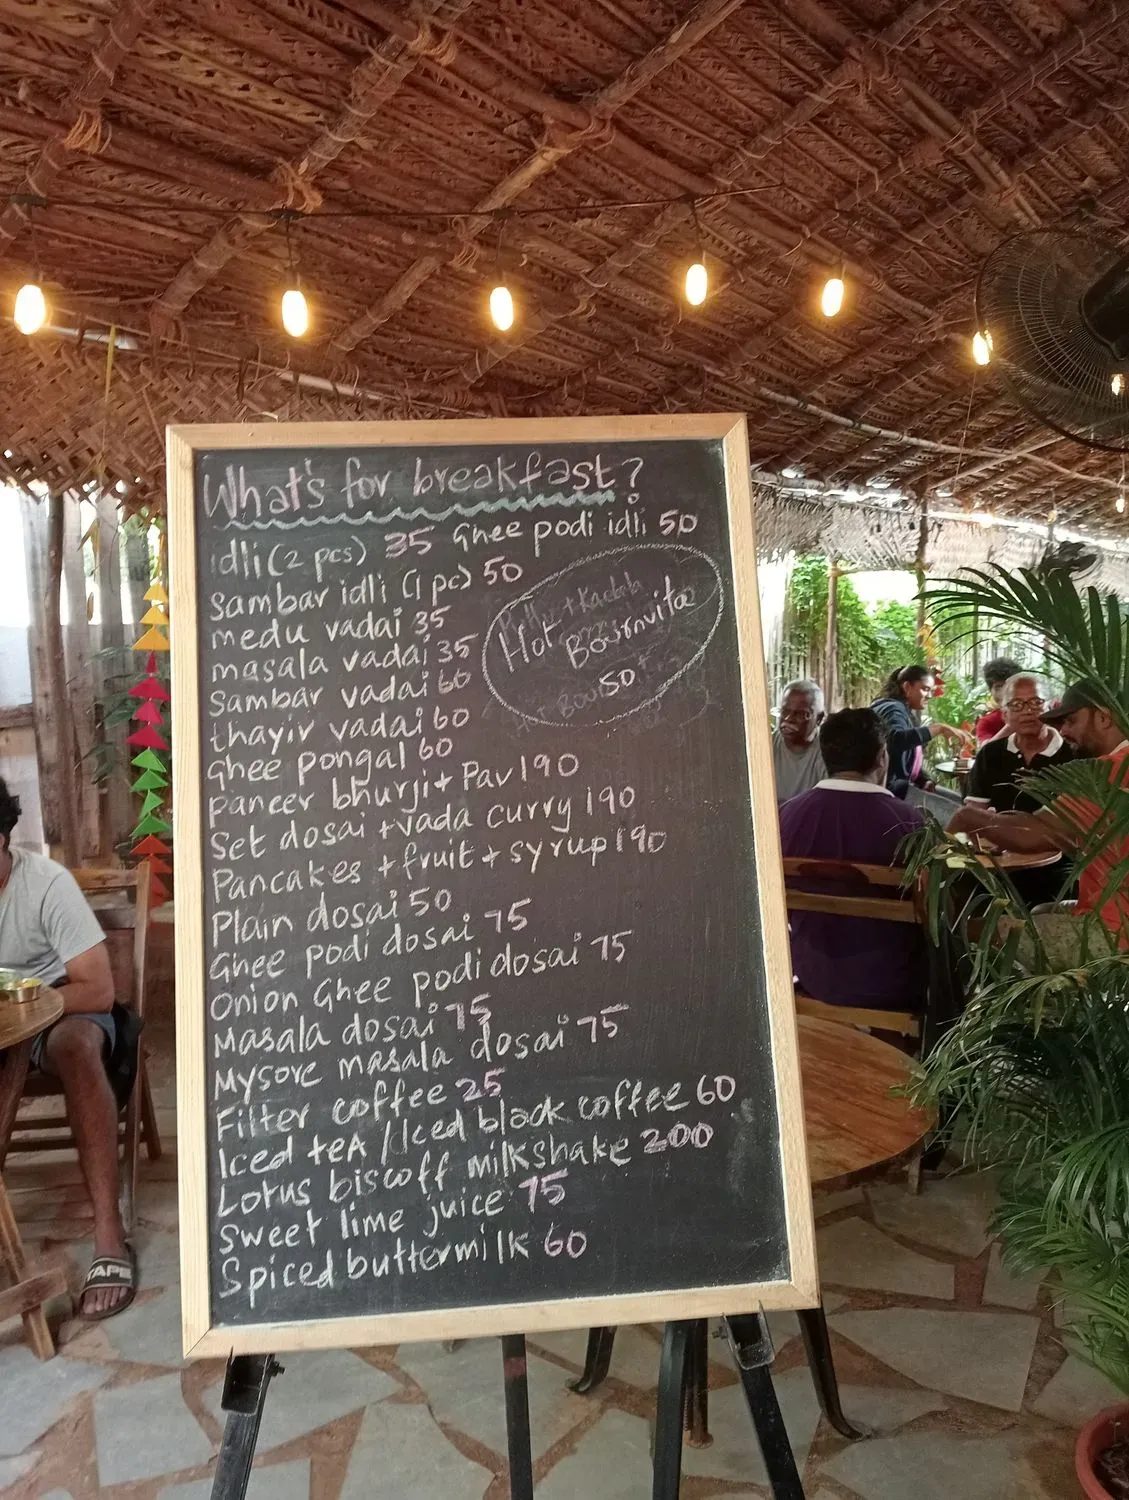 What's for breakfast?
idli (2 pcs) 35 Ghee podi idli 50
Sambar idli (1 pc) 50
medu vadai 35
masala vadai 35
Sambar vadai 60
thayir vadai 60
Ghee pongal 60
paneer bhurji + Pav 190
Set dosai + vada curry 190
Pancakes + fruit + syrup 190
Plain dosai 50
Ghee podi dosai 75
Onion Ghee podi dosai 75
Masala dosai 75
Mysore masala dosai 75
Filter coffee 25
Iced teA / Iced black coffee 60
Lotus biscoff milkshake 200
Sweet lime juice 75
Spiced buttermilk 60
Hot
Bournvita
50
TAPE